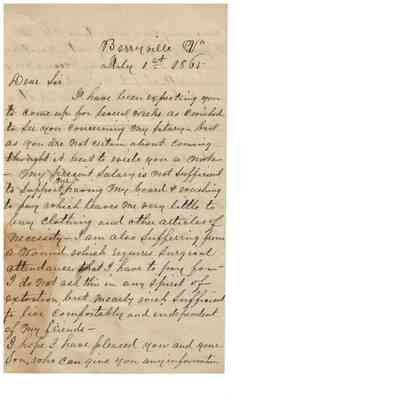 Berryville Va
July 1st 1865
Dear Sir
I have been expecting you
to come up for several weeks as I wished
to see you concerning my salary - but
as you are not certain about coming
thought it best to write you a note
- My present salary is not sufficient
to support me having my board & washing
to pay which leaves me very little to
buy clothing and other articles of
necessity - I am also suffering from
a wound which requires surgical
attendance that I have to pay for -
I do not ask this in any spirit of
extortion but merely wish sufficient
to live comfortably and independent
of my friends -
I hope I have pleased you and your
Son, who can give you any information